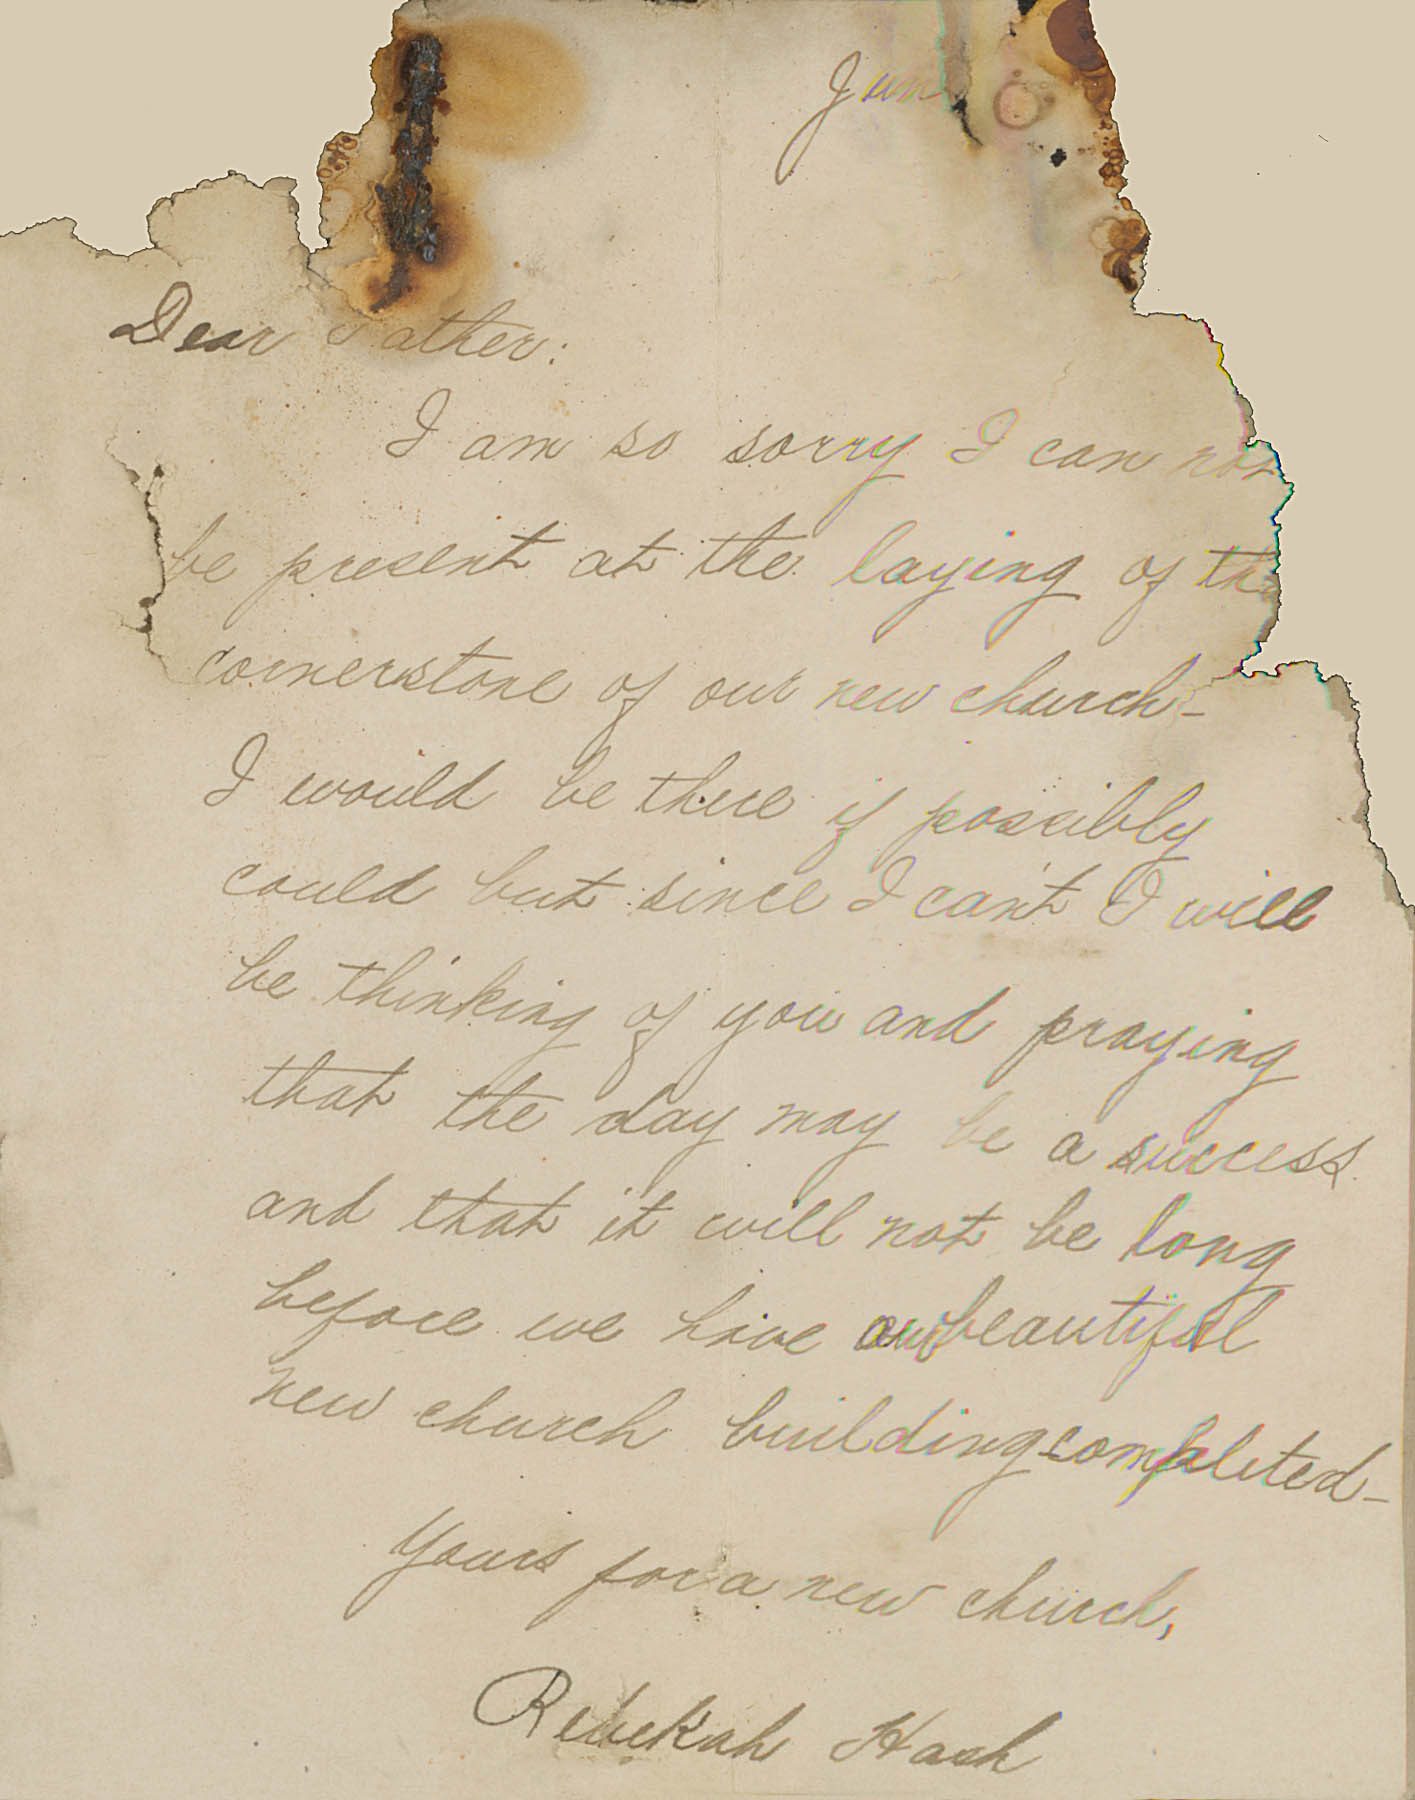 Jun
Dear Father:
I am so sorry I can not
be present at the laying of the
cornerstone of our new church-
I would be there if possibly
could but since I can't I will
be thinking of you and praying
that the day may be a success
and that it will not be long
before we have our beautiful
new church building completed-
Yours for a new church,
Rebekah Hash